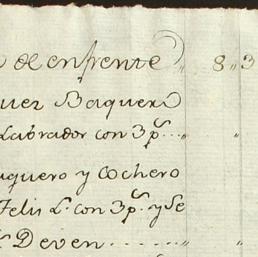 de enfrente „ 8 „ 3
quez Baquero
Labrador con 3 p.s ... „ „
aquero y Cochero
Felis L. con 3 p.s y Se
Deven ....... „